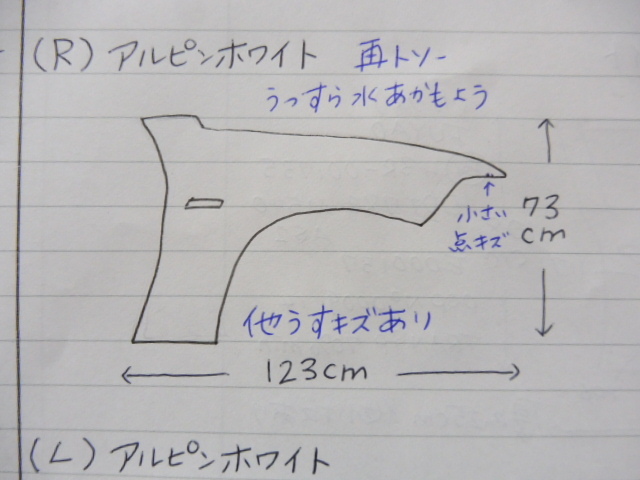 (R) アルピンホワイト 再トソー
うっすら水あかもよう
小さい
点キズ
73
cm
他うすキズあり
123cm
(L) アルピンホワイト